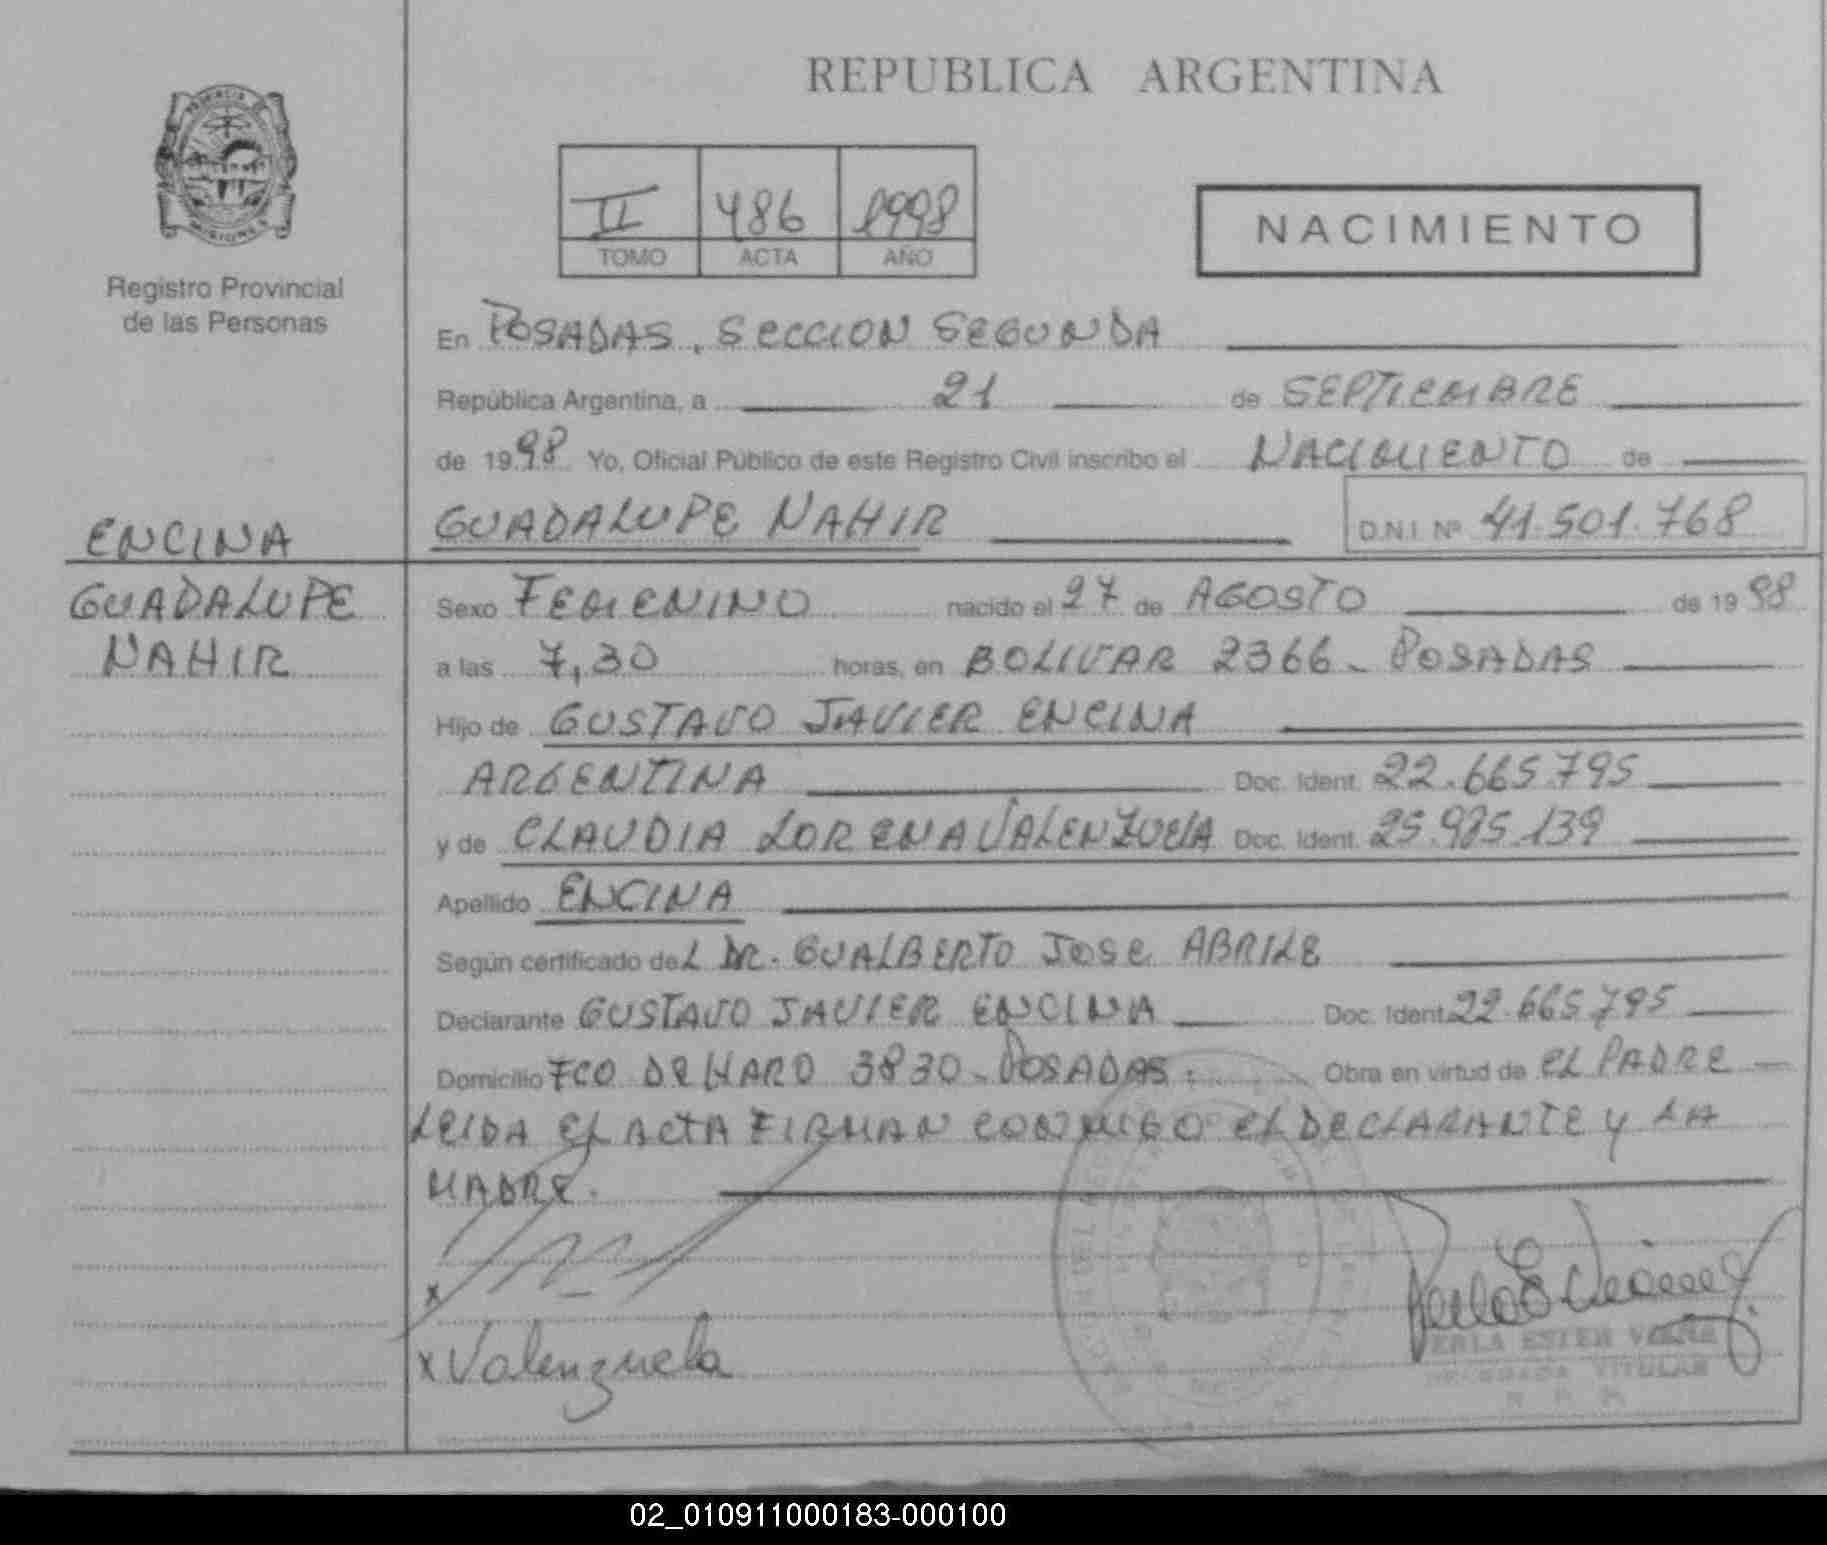 REPUBLICA ARGENTINA
PROVINCIA DE
MISIONES
Registro Provincial
de las Personas
II 486 1998
TOMO ACTA AÑO
NACIMIENTO
En POSADAS, SECCION SEGUNDA
República Argentina, a 21 de SEPTIEMBRE
de 1998 Yo, Oficial Público de este Registro Civil inscribo el NACIMIENTO de
GUADALUPE NAHIR D.N.I. Nº 41.501.768
ENCINA
GUADALUPE
NAHIR
Sexo FEMENINO nacido el 27 de AGOSTO de 1998
a las 7,30 horas, en BOLIVAR 2366 - POSADAS
Hijo de GUSTAVO JAVIER ENCINA
ARGENTINA Doc. Ident. 22.665.795
y de CLAUDIA LORENA VALENZUELA Doc. Ident. 25.985.139
Apellido ENCINA
Según certificado del DR. GUALBERTO JOSE ABRILE
Declarante GUSTAVO JAVIER ENCINA Doc. Ident. 22.665.795
Domicilio FCO DE HARO 3830 - POSADAS. Obra en virtud de EL PADRE
LEIDA EL ACTA FIRMAN CONMIGO EL DECLARANTE Y LA
MADRE.
x
x Valenzuela
PERLA ESTER
DELEGADA TITULAR
02_010911000183-000100